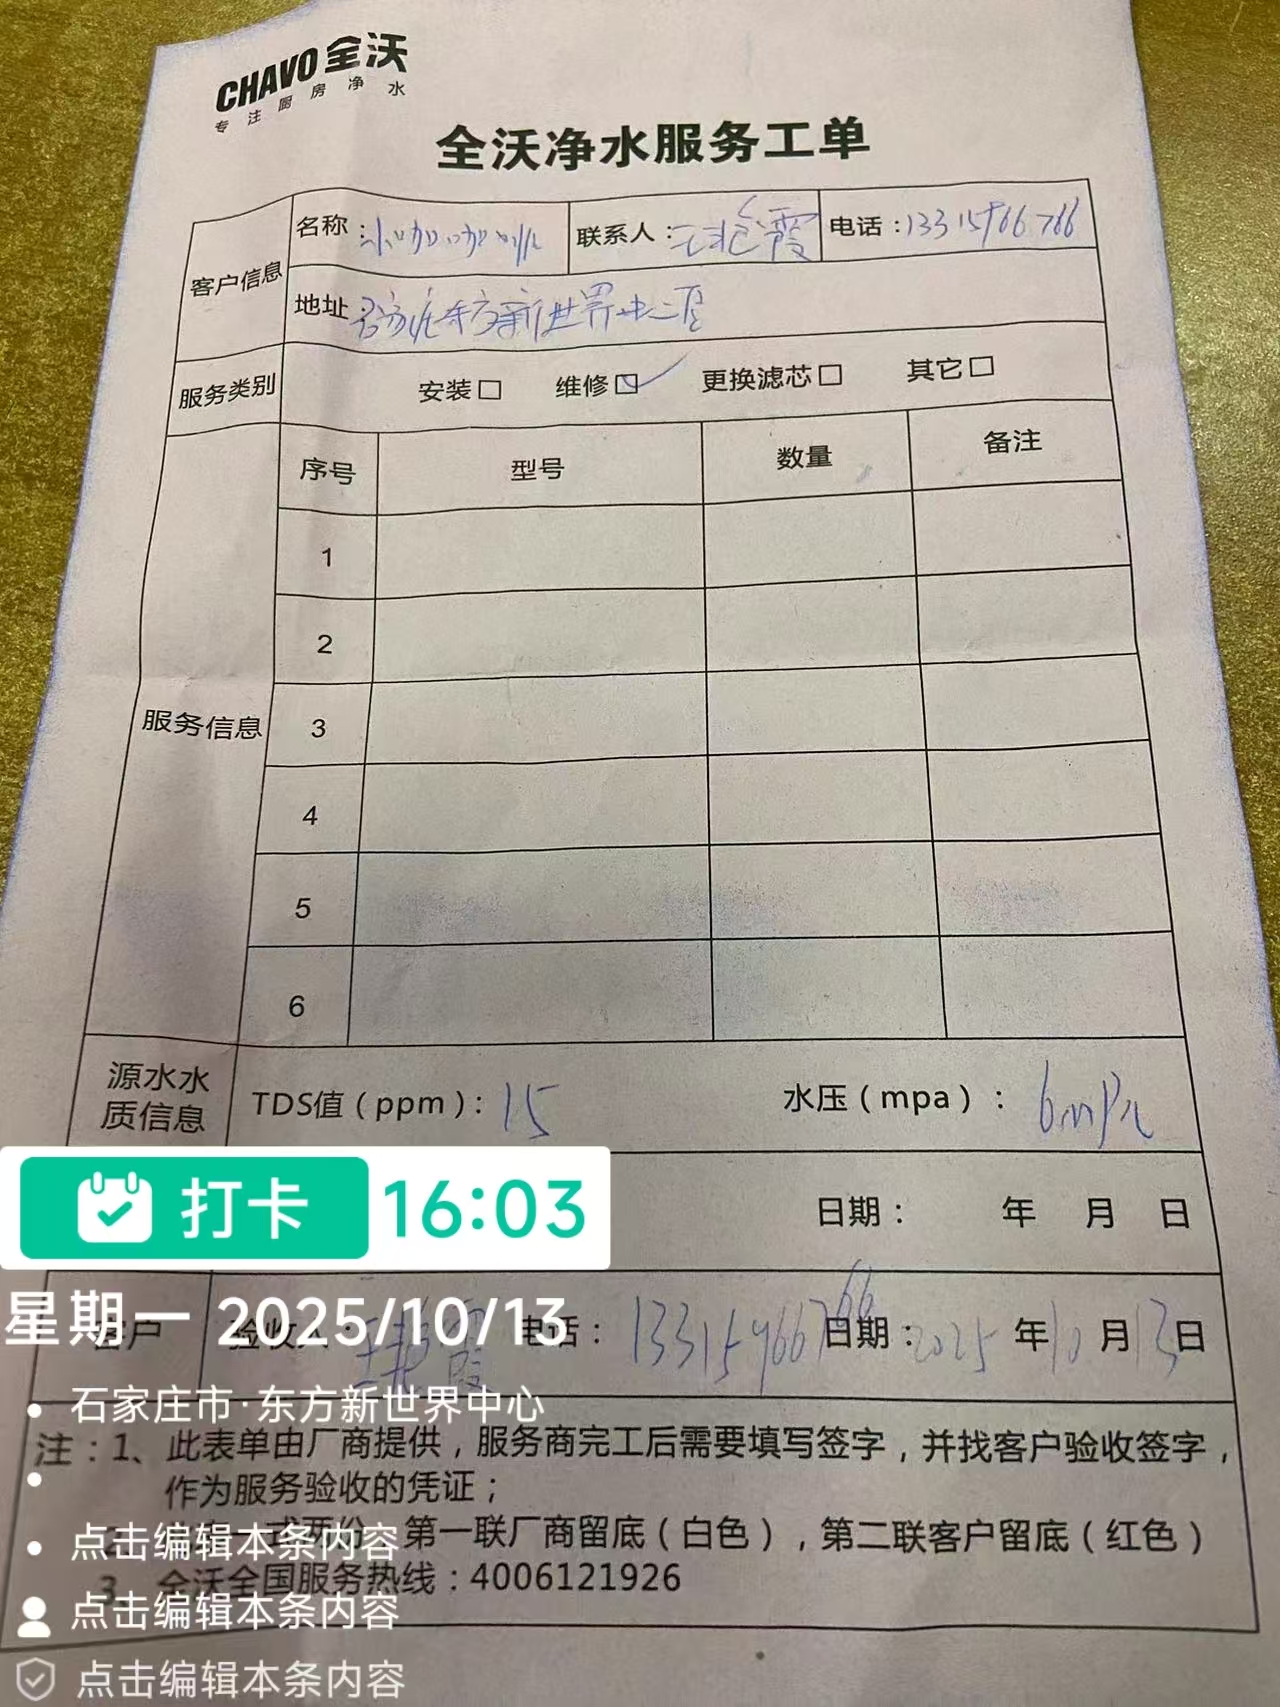 CHAVO 全沃
专注厨房净水
全沃净水服务工单
客户信息
名称：
联系人： 霞
电话：13315966766
地址 东方新世界 二层
服务类别
安装□ 维修☑ 更换滤芯□ 其它□
服务信息
序号 型号 数量 备注
1
2
3
4
5
6
源水水质信息
TDS值（ppm）：15 水压（mpa）：6mpa
日期： 年 月 日
打卡 16:03
客户 验收人： 霞 电话：13315966766 日期：2025年10月13日
星期一 2025/10/13
石家庄市·东方新世界中心
注：1、此表单由厂商提供，服务商完工后需要填写签字，并找客户验收签字，
作为服务验收的凭证；
一式两份，第一联厂商留底（白色），第二联客户留底（红色）
点击编辑本条内容
3、全沃全国服务热线：4006121926
点击编辑本条内容
点击编辑本条内容